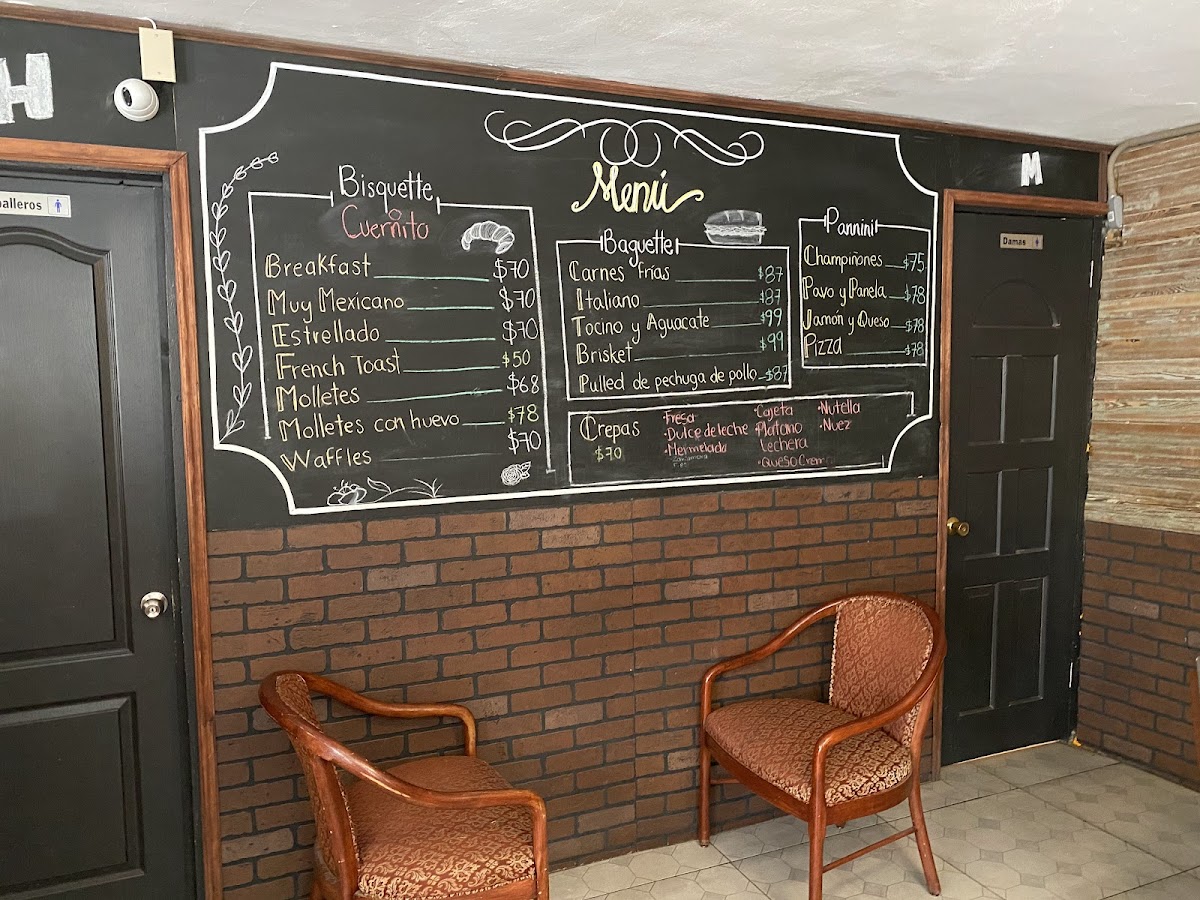 H
alleros
Menú
Bisquette
Cuernito
Breakfast $70
Muy Mexicano $70
Estrellado $70
French Toast $50
Molletes $68
Molletes con huevo $78
Waffles $70
Baguette
Carnes frías $87
Italiano $87
Tocino y Aguacate $99
Brisket $99
Pulled de pechuga de pollo $87
Pannini
Champiñones $75
Pavo y Panela $78
Jamón y Queso $78
Pizza $78
Crepas
$70
·Fresa
·Dulce de leche
·Mermelada
Zarzamora
·Cajeta
·Plátano
Lechera
·Queso Crema
·Nutella
·Nuez
M
Damas